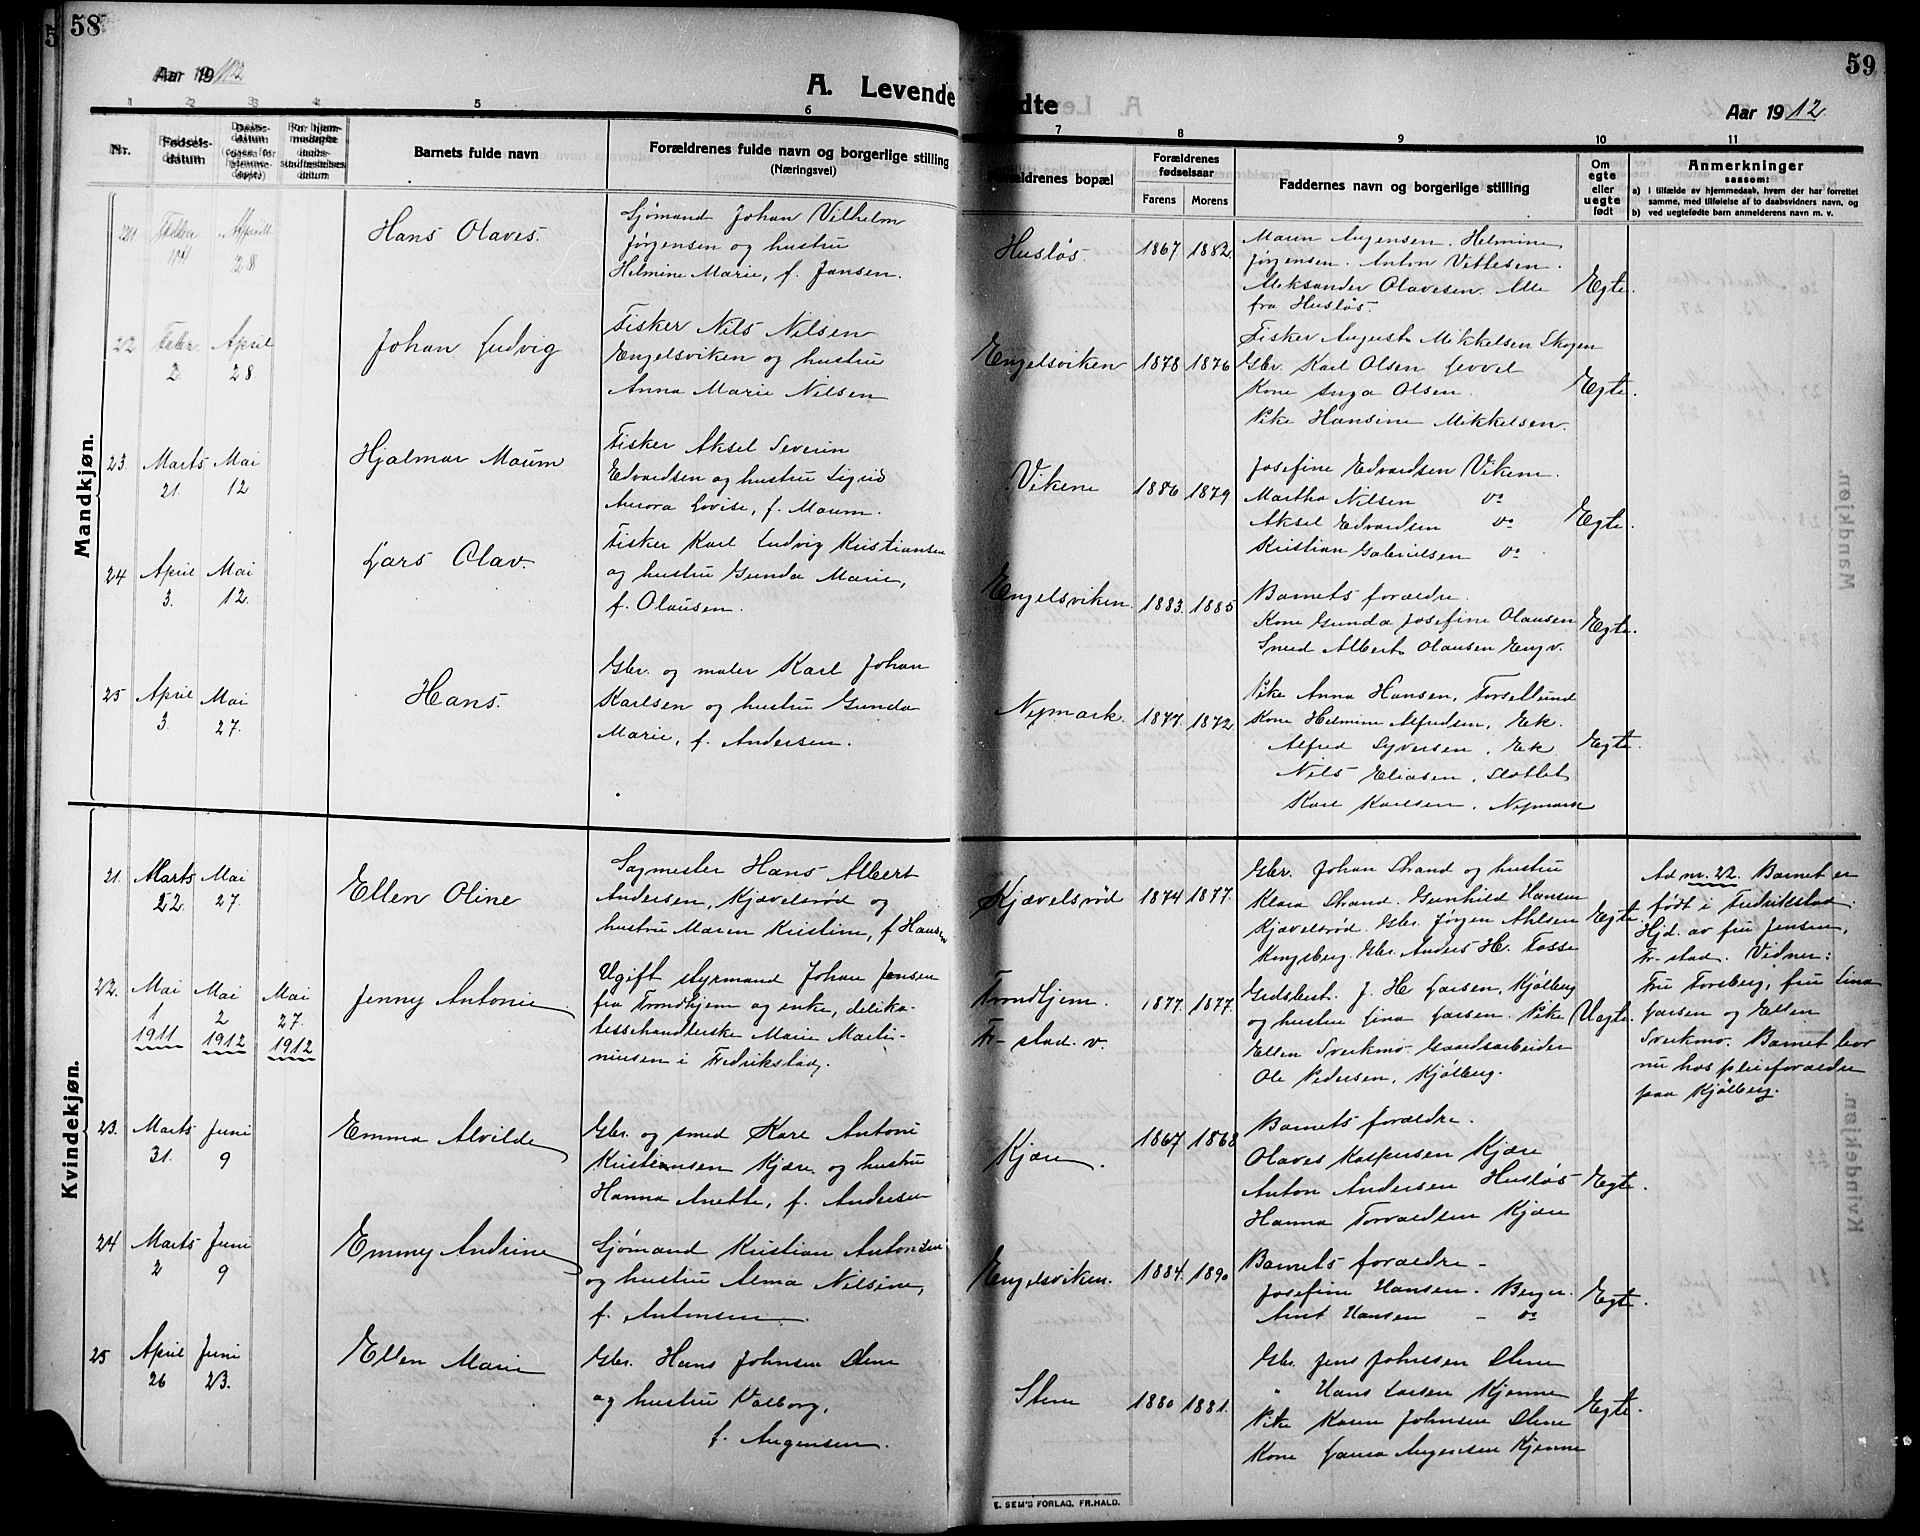 58
Aar 1912
A. Levende
1 2 3 4 5 6
Nr.
Fødsels-
datum
Daabs-
datum
(ogsaa for
hjemme-
døpte)
For hjem-
medøpte
daabs-
stadfæstelses
datum
Barnets fulde navn
Forældrenes fulde navn og borgerlige stilling
(Næringsvei)
Mandkjøn.
21. Febr. 10 April 28
Hans Olaves.
Sjømand Johan Vilhelm
Jørgensen og hustru
Helmine Marie, f. Jansen.
22. Febr. 2 April 28
Johan Ludvig
Fisker Nils Nilsen
Engelsviken og hustru
Anna Marie Nilsen
23. Marts 21. Mai 12
Hjalmar Maum
Fisker Aksel Severin
Edvardsen og hustru Sigrid
Aurora Lovise, f. Maum.
24 April 3. Mai 12.
Lars Olav.
Fisker Karl Ludvig Kristiansen
og hustru Gunda Marie,
f. Olausen.
25 April 3. Mai 27.
Hans.
Gbr. og maler Karl Johan
Karlsen og hustru Gunda
Marie, f. Andersen.
Kvindekjøn.
21. Marts 22. Mai 27.
Ellen Oline
Sagmester Hans Albert
Andersen, Kjævelsrød og
hustru Maren Kristine, f Hansen
22. Mai 1 1911 Mai 2 1912 Mai 27. 1912
Jenny Antonie
Ugift styrmand Johan Jensen
fra Trondhjem og enke, delika-
tessehandlerske Marie Marti-
niusen i Fredrikstad.
23. Marts 31. Juni 9
Emma Alvilde
Gbr. og smed Karl Antoni
Kristiansen Kjære og hustru
Hanna Anette, f. Andersen
24 Marts 2 Juni 9
Emmy Andrine
Sjømand Kristian Antonsen
og hustru Alma Nilsine,
f. Antonsen.
25 April 26 Juni 23.
Ellen Marie
Gbr. Hans Johnsen Stene
og hustru Valborg,
f. Augensen.
59
dte
Aar 1912.
7 8 9 10 11
Forældrenes bopæl
Forældrenes
fødselsaar
Farens Morens
Faddernes navn og borgerlige stilling
Om
egte
eller
uegte
født
Anmerkninger
saasom:
a) i tilfælde av hjemmedaab, hvem der har forrettet
samme, med tilføielse af to daabsvidners navn, og
b) ved uegtefødte barn anmelderens navn m. v.
Husløs. 1867. 1882.
Maren Augensen. Helmine
Jørgensen. Anton Vettesen.
Aleksander Olavesen. Alle
fra Husløs.
Egte.
Engelsviken 1878 1876
Fisker August Mikkelsen Skogen
Gbr. Karl Olsen Levvel
Kone Inga Olsen.
Pike Hansine Mikkelsen.
Egte.
Vikene 1886 1879
Josefine Edvardsen Vikene.
Martha Nilsen do
Aksel Edvardsen do
Kristian Gabrielsen do
Egte.
Engelsviken. 1883. 1885
Barnets forældre.
Kone Gunda Josefine Olausen
Smed Albert Olausen Eng.v.
Egte.
Nymark. 1877. 1872.
Pike Anna Hansen, Torsellund
Kone Helmine Alfredsen, Ek.
Alfred Syversen, Ek
Nils Eliasen, Slottet
Karl Karlsen, Nymark
Egte.
Kjævelsrød 1874 1877.
Gbr. Johan Strand og hustru
Klara Strand. Gunhild Hansen
Kjævelsrød. Gbr. Jørgen Ahlsen
Kongsberg. Gbr. Anders H. Fosse
Egte.
Ad nr. 22. Barnet er
født i Fredrikstad.
Hjd. av fru Jensen,
Fr-stad. Vidner:
Fru Forsberg, fru Lina
Larsen og Ellen
Sverkmo. Barnet bor
nu hos pleieforældre
paa Kjølberg.
Trondhjem.
Fr-stad. v.
1877. 1877.
Gidsbest. J. H Larsen, Kjølberg
og hustru Lina Larsen. Pike
Ellen Sverkmo. Gaardsarbeider
Ole Pedersen, Kjølberg.
Uegte.
Kjære. 1867. 1868
Barnets forældre.
Olaves Kaspersen Kjære
Anton Andersen Husløs
Hanna Torvaldsen Kjære
Egte.
Engelsviken. 1884. 1890
Barnets forældre -
Josefine Hansen - Berger.
Arnt Hansen - do
Egte.
Stene 1880 1881.
Gbr. Jens Johnsen Stene
" Hans Larsen Kjenne
Pike Karen Johnsen Stene
Kone Laura Augensen Kjenne
Egte.
E. SEM'S FORLAG, FR.HALD.